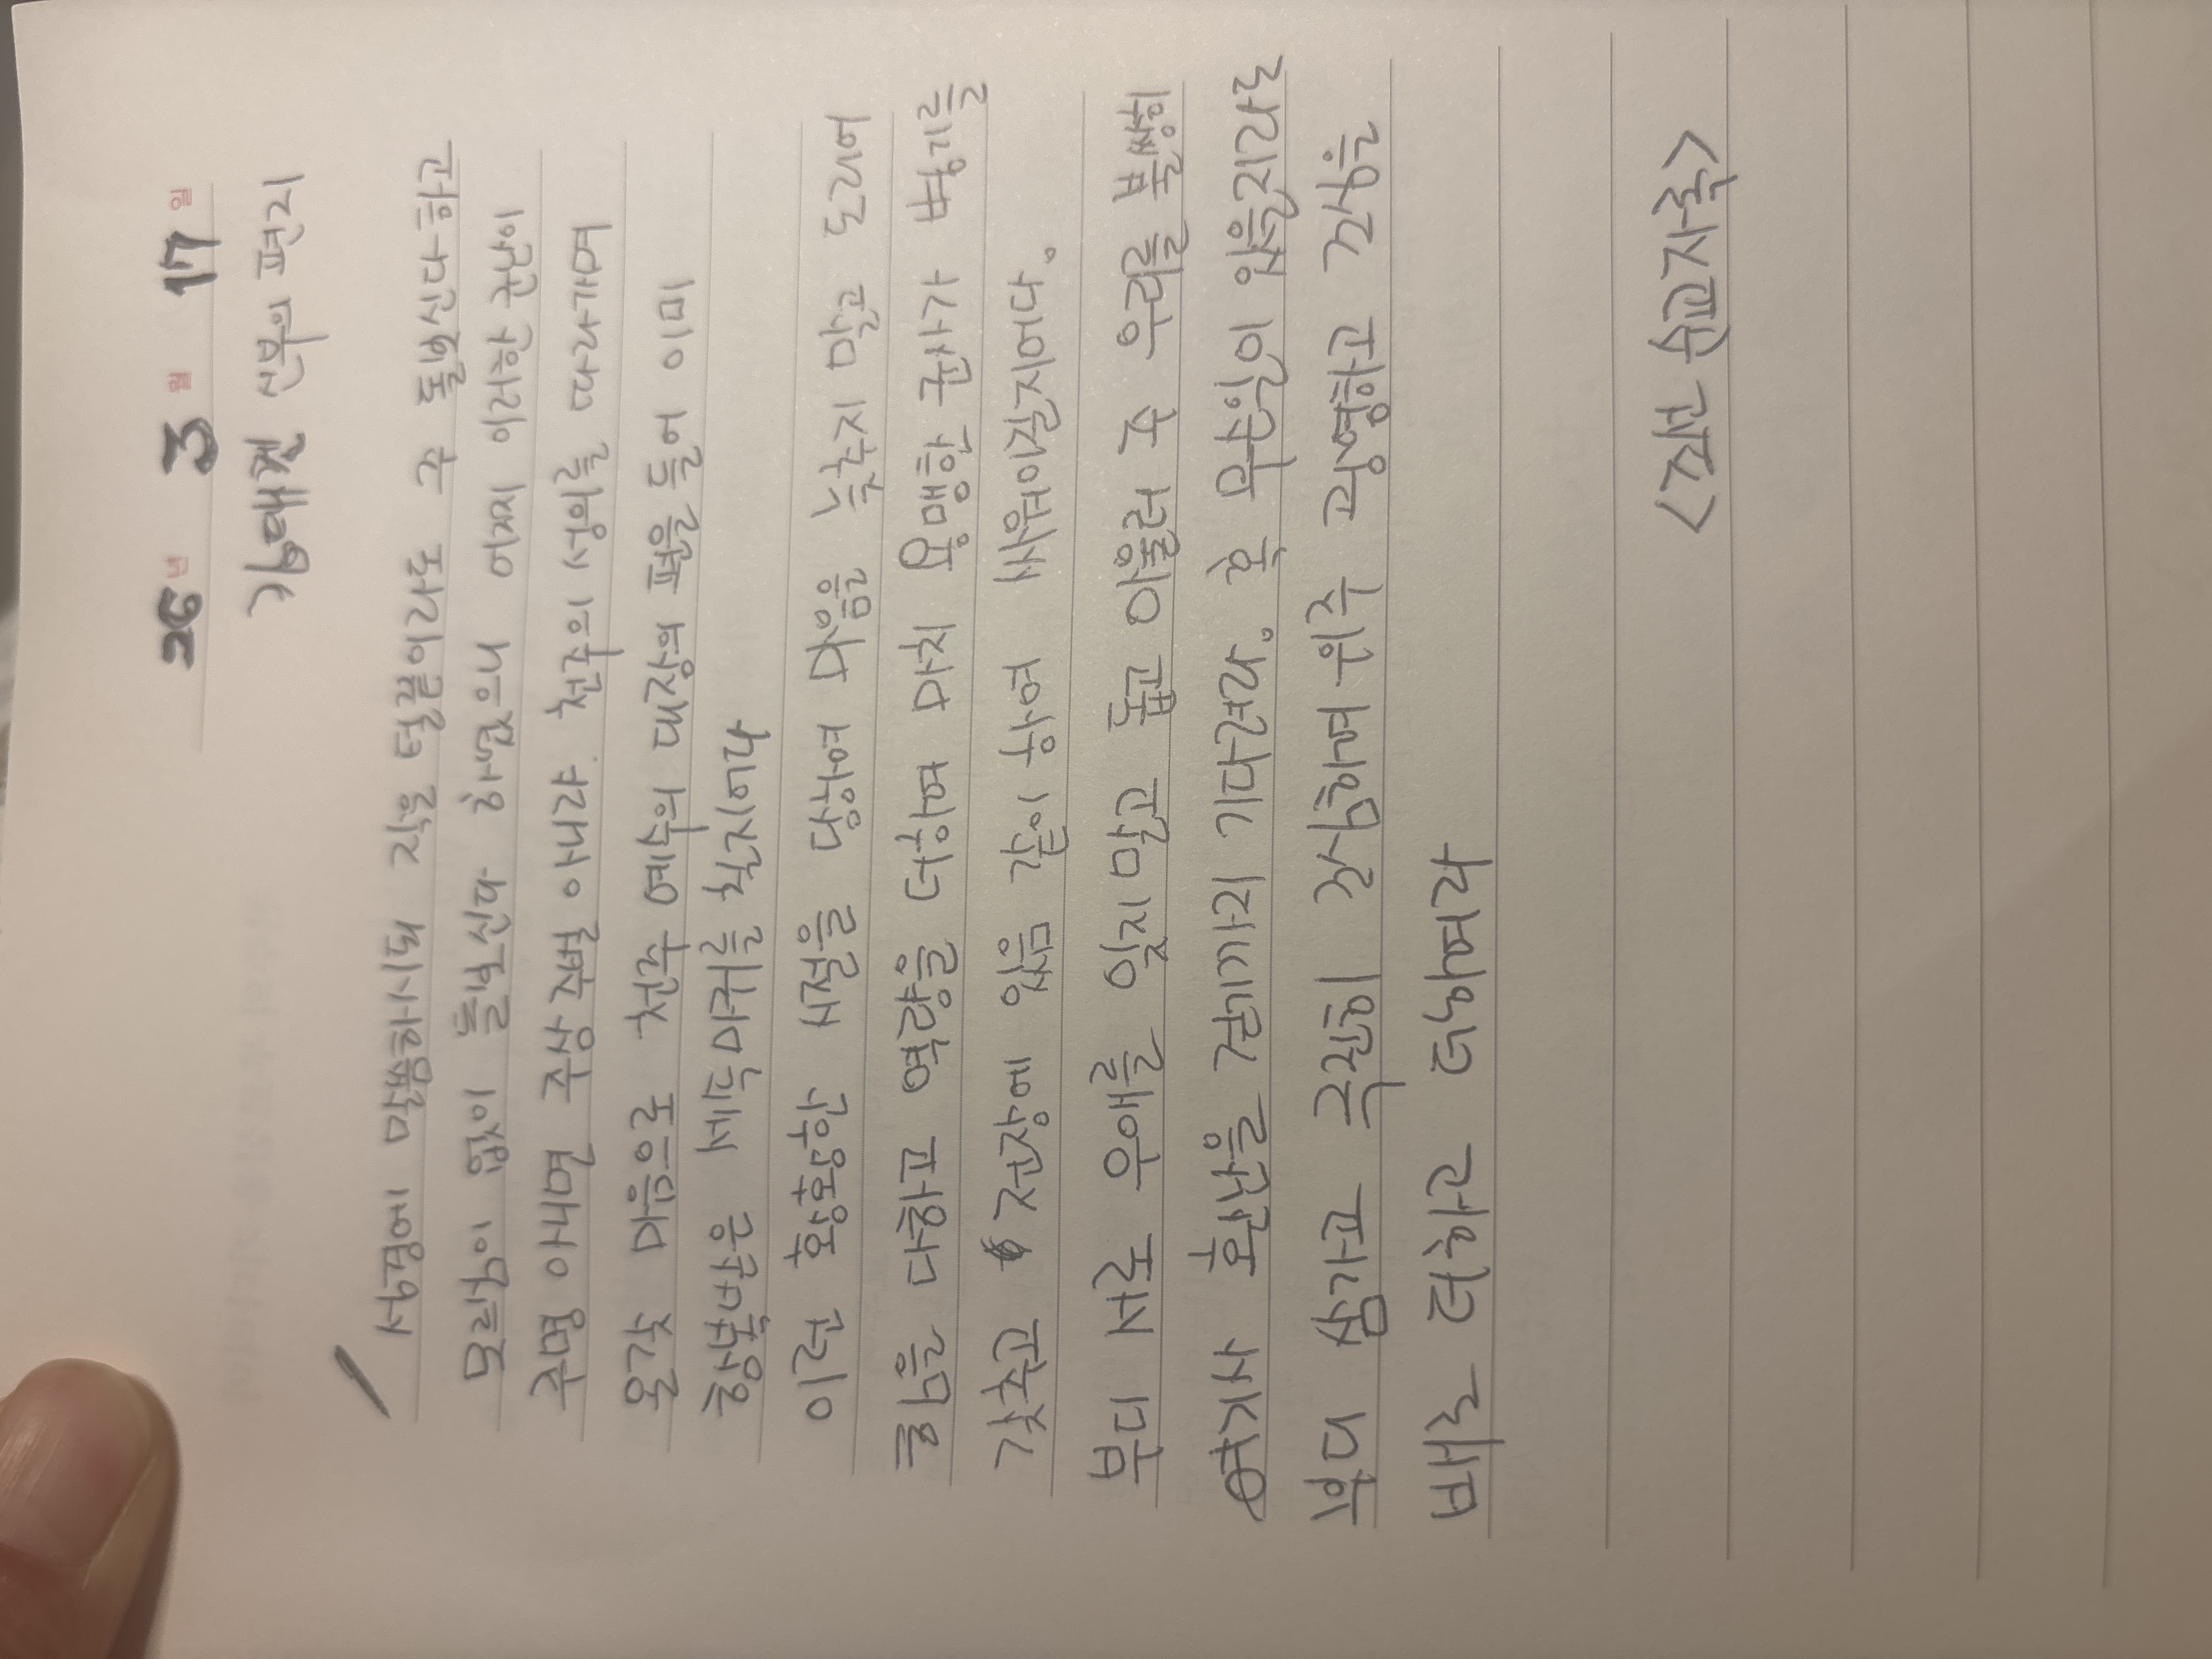 26년 3월 17일
김대건 신부의 편지
성경에 말씀하시되 작은 털끝이라도 주 돌보신다하고
모르심이 없이 돌보신다 하셨으니 어찌 이러한 군난이
주명 아니면 주상 주벌 아니랴. 주의 성의를 따라가며
온갖 마음으로 천주 예수의 대장의 편을 들어 이미
항복받은 세속마귀를 칠지어다
이런 황황한 시절을 당하여 마음을 늦추지 말고 도리어
힘을 다하고 역량을 더하며 마치 용맹한 군사가 병기를
갖추고 전장에 있음 같이 하여 싸워이길지어다.
부디 서로 우애를 잊지말고 돕고 아울러 주 우리를 불쌍히
여기사 환난을 걷기까지 기다려라. 혹 무슨일이 있을지라도
부디 삼가고 극진히 조심하며 위주 광영하고 조심을
배로 더하고 더하여라
<조규 순교자혹>